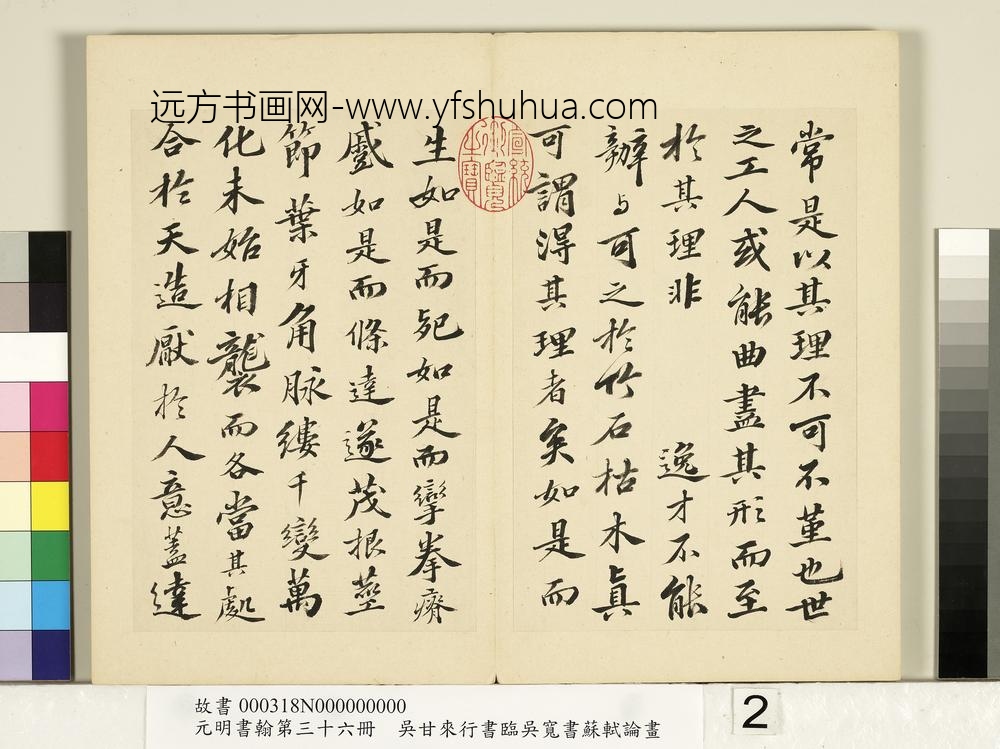 远方书画网-www.yfshuhua.com
常是以其理不可不堇也世
之工人或能曲盡其形而至
於其理非 逸才不能
辦与可之於竹石枯木真
可謂得其理者矣如是而
宣統御覽之寶
生如是而死如是而攣拳瘠
蹙如是而條達遂茂根莖
節葉牙角脉縷千變萬
化未始相襲而各當其處
合於天造厭於人意蓋達
故書 000318N000000000
元明書翰第三十六冊 吳甘來行書臨吳寬書蘇軾論畫
2